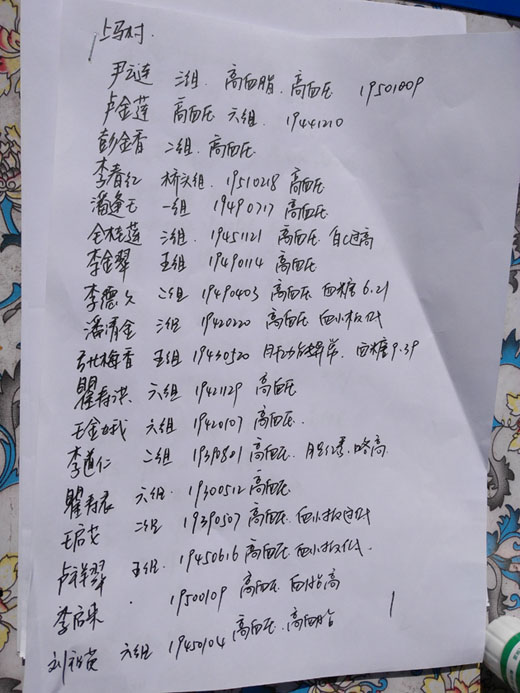 上马村.
尹云连 二组. 高血脂. 高血压 19501009
卢金莲 高血压 六组. 19441210
彭金香 二组. 高血压.
李春红 桥六组. 19510218 高血压
潘逢 一组 19490717 高血压
全桂莲 三组. 19451121 高血压 过高
李金翠 五组 19490114 高血压
李德 二组 19490403 高血压 血糖6.21
潘清金 三组 19420220 高血压 血小板低
张梅香 五组 19430520 肝功能异常. 血糖9.39
瞿寿洪 六组 19421129 高血压
王金 六组 19420107 高血压.
李道仁 二组 高血压. 略高
瞿寿 六组. 19300512 高血压
王启 二组 19390507 高血压. 血小板过低
卢祥翠 五组. 19450616 高血压 血小板低.
李启 . 19500109 高血压 血脂高
刘 六组 19450104 高血压. 高血脂